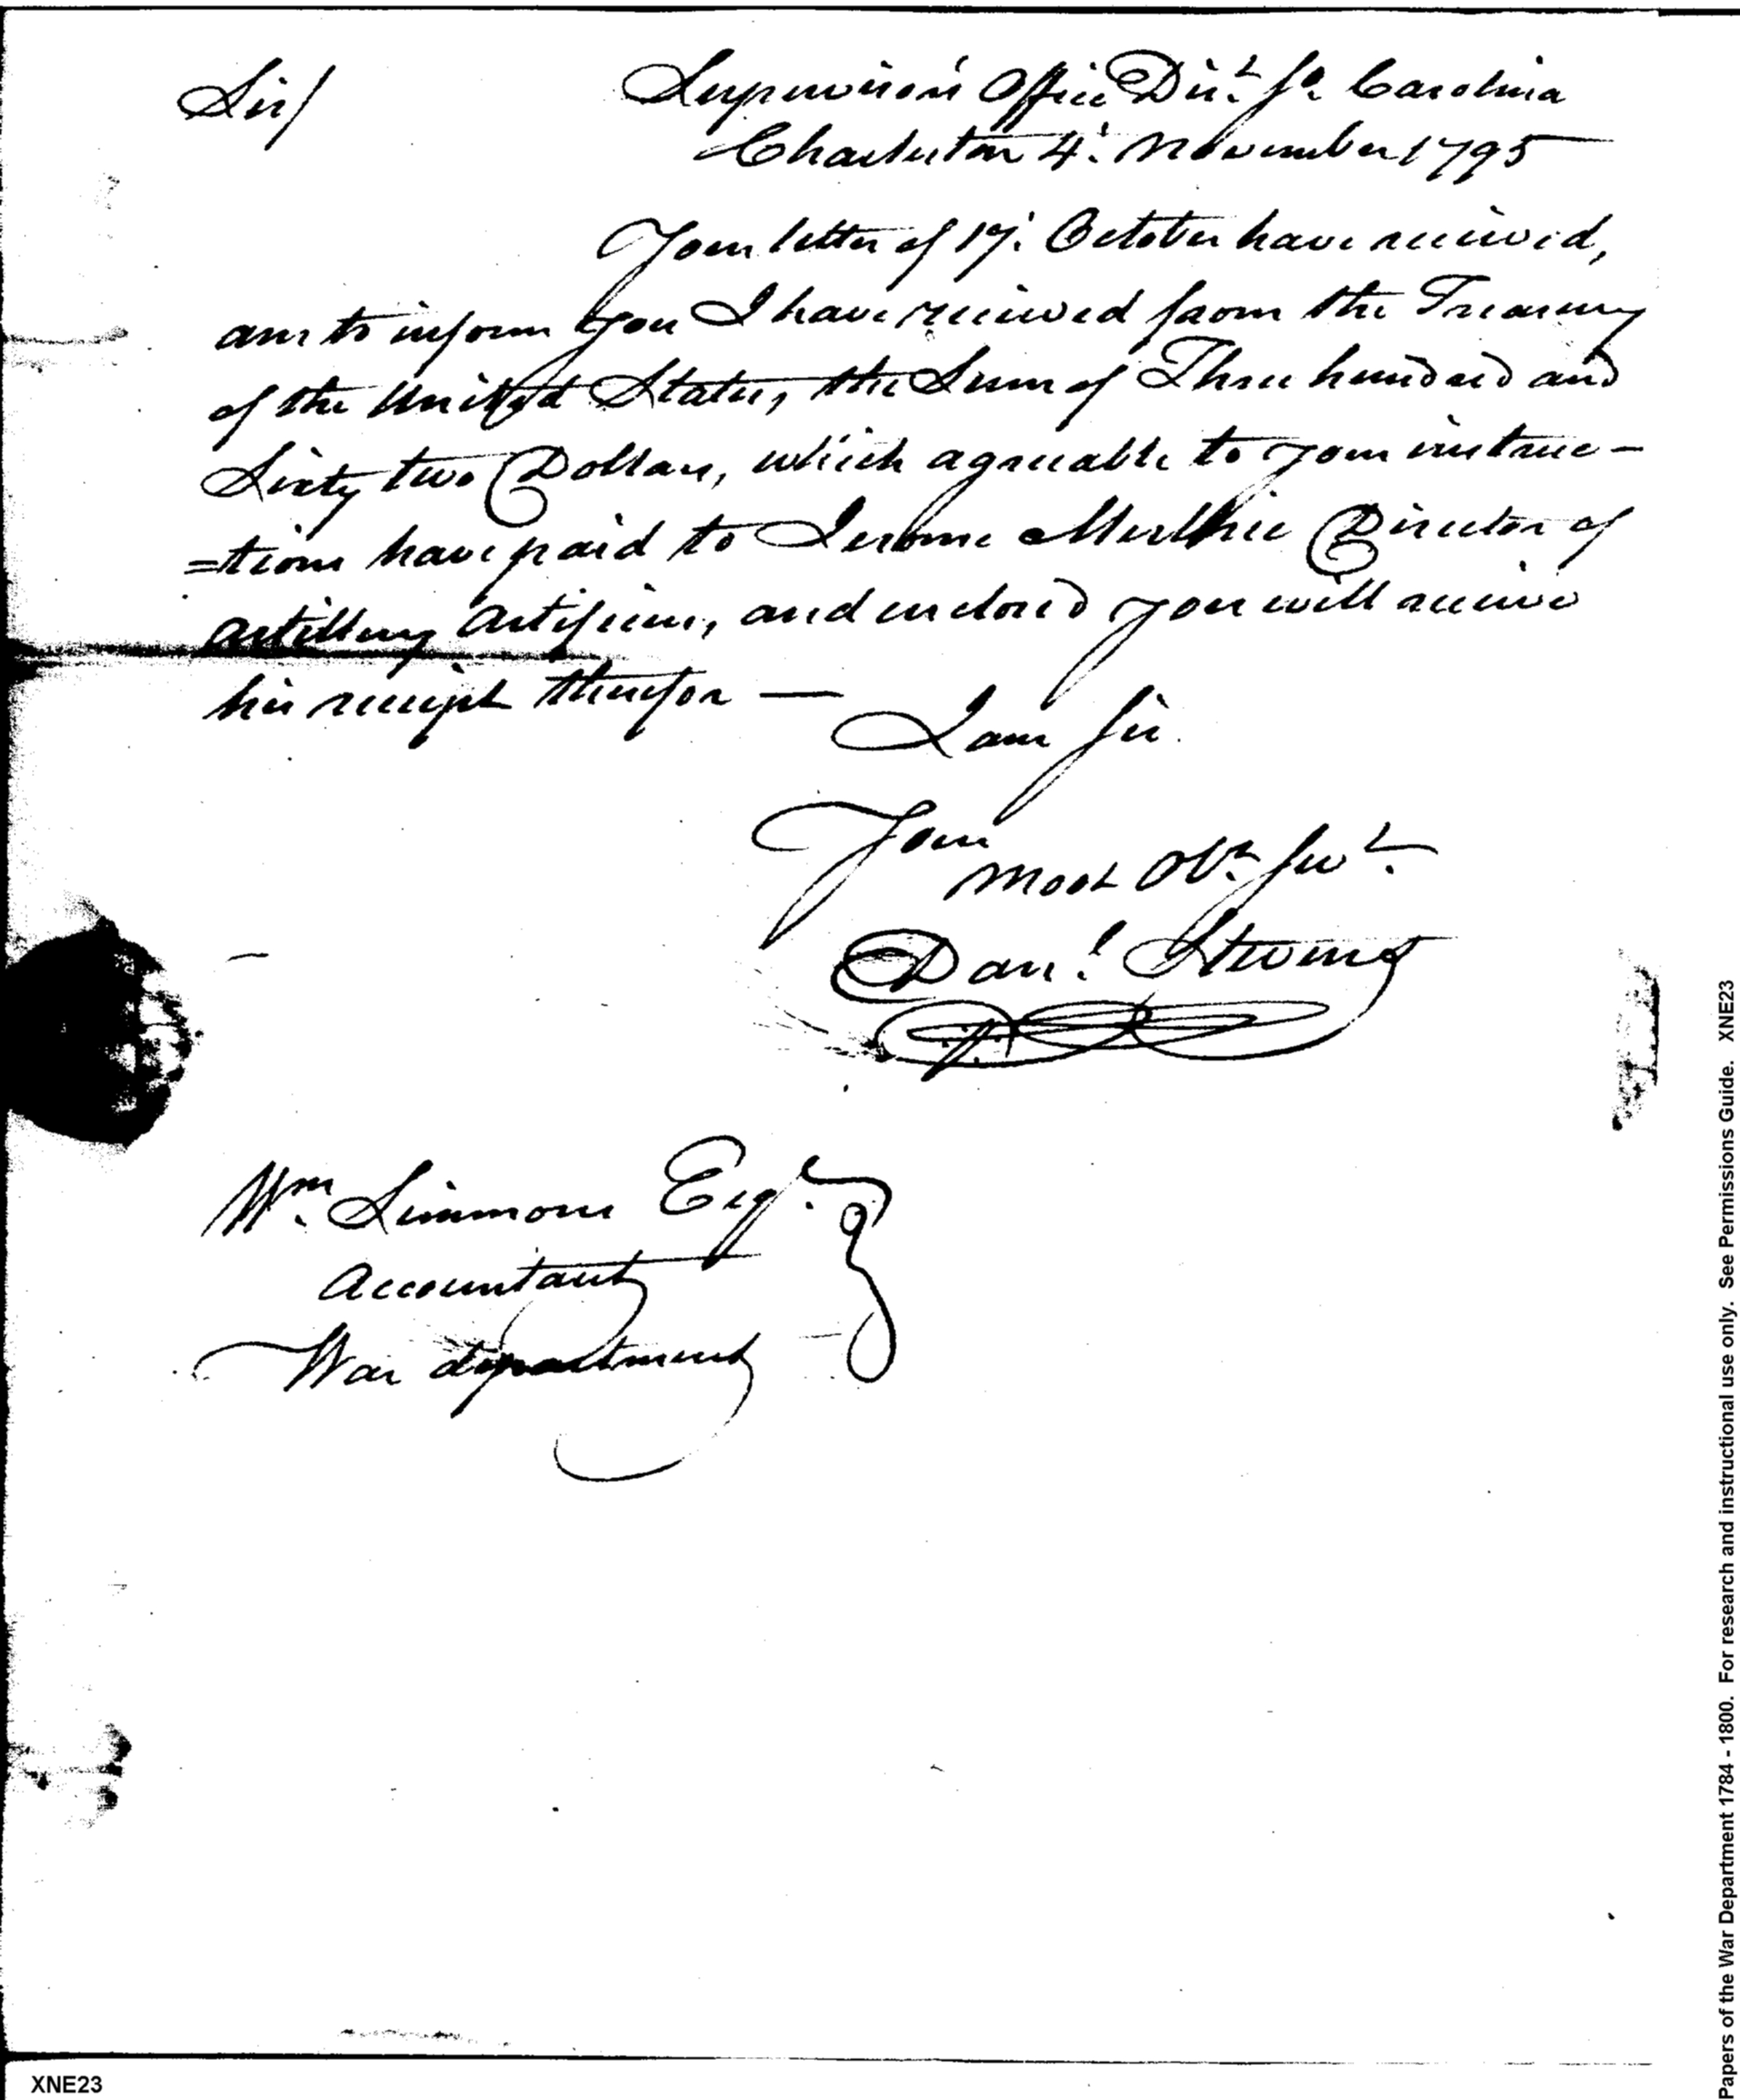 Sir/
Supervisor's Office Dist. So. Carolina
Charleston 4. November 1795
Your letter of 17. October have received,
am to inform you I have received from the Treasury
of the United States, the Sum of Three hundred and
Sixty two Dollars, which agreeable to your instruc-
=tions have paid to Jerome Director of
Artillery Artificers, and enclosed you will receive
his receipt therefor —
I am Sir.
Your
Most Obt. Servt.
Danl. Stevens
Wm. Simmons Esqr.
Accountant
War department
Papers of the War Department 1784 - 1800. For research and instructional use only. See Permissions Guide. XNE23
XNE23